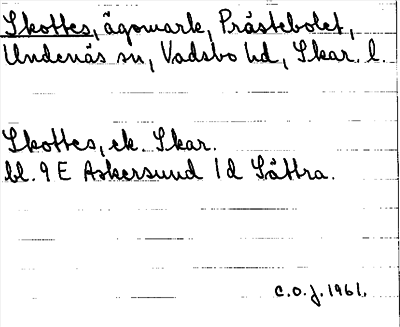 Skottes, ägomark, Prästebolet,
Undenäs sn, Vadsbo hd, Skar. l.
Skottes, ek. Skar.
bl. 9 E Askersund 1 d Sättra.
C.O.J. 1961.